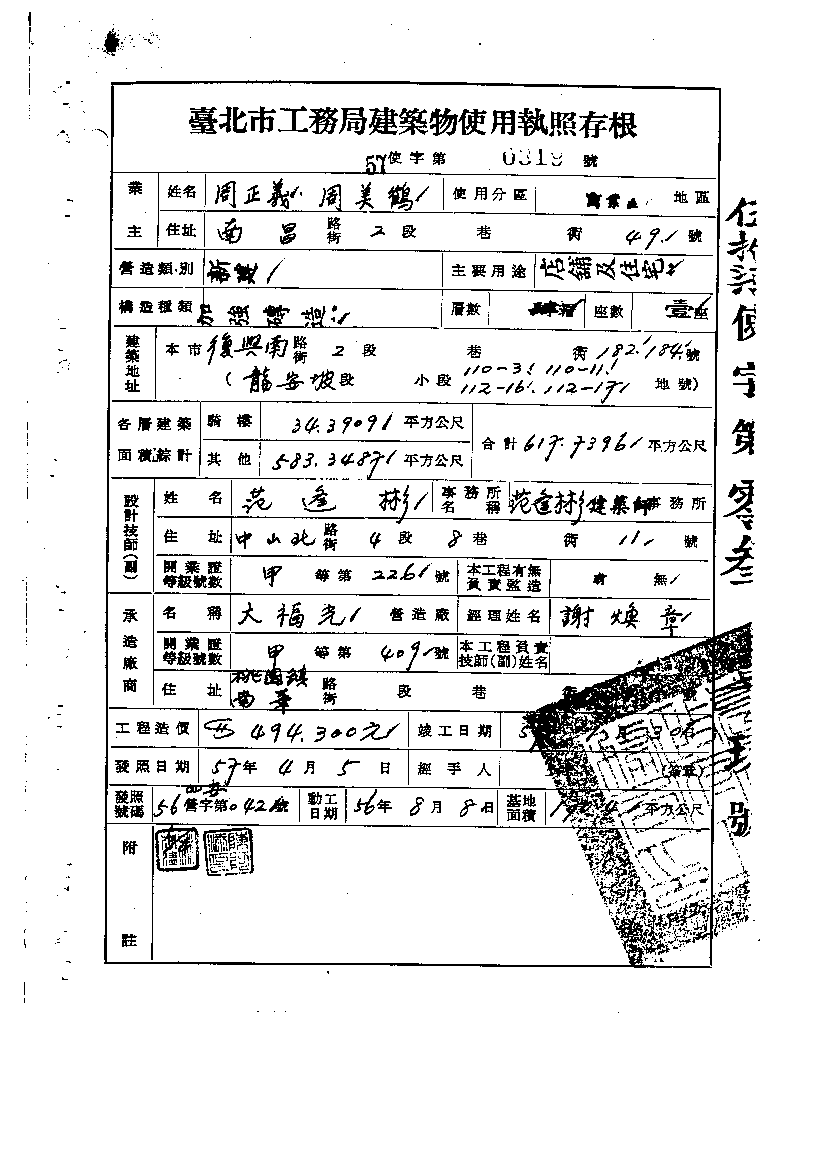 臺北市工務局建築物使用執照存根
57使字第 0319 號
業主 姓名 周正義 周美鶴 使用分區 商業區 地區
住址 南昌路街 2 段 巷 衖 49 號
營造類別 新建 主要用途 店舖及住宅
構造種類 加強磚造 層數 座數 壹座
建築地址 本市 復興南路街 2 段 巷 衖 182.184號
(龍安坡段 小段 110-3 110-11 112-16 112-17 地號)
各層建築面積綜計 騎樓 34.3909 平方公尺 合計 617.7396 平方公尺
其他 583.3487 平方公尺
設計技師(副) 姓名 范逢彬 事務所名稱 范逢彬建築師事務所
住址 中山北路街 4 段 8 巷 衖 11 號
開業證等級號數 甲 等第 2261 號 本工程有無負責監造 有 無
承造廠商 名稱 大福光 營造廠 經理姓名 謝煥章
開業證等級號數 甲 等第 409 號 本工程負責技師(副)姓名
住址 桃園鎮南華路街 段 巷 衖 號
工程造價 494.300元 竣工日期
發照日期 57年 4 月 5 日 經手人
發照號碼 56營字第0421號 動工日期 56年 8 月 8 日 基地面積 平方公尺
附註
伍拾柒使字第零叁壹玖號